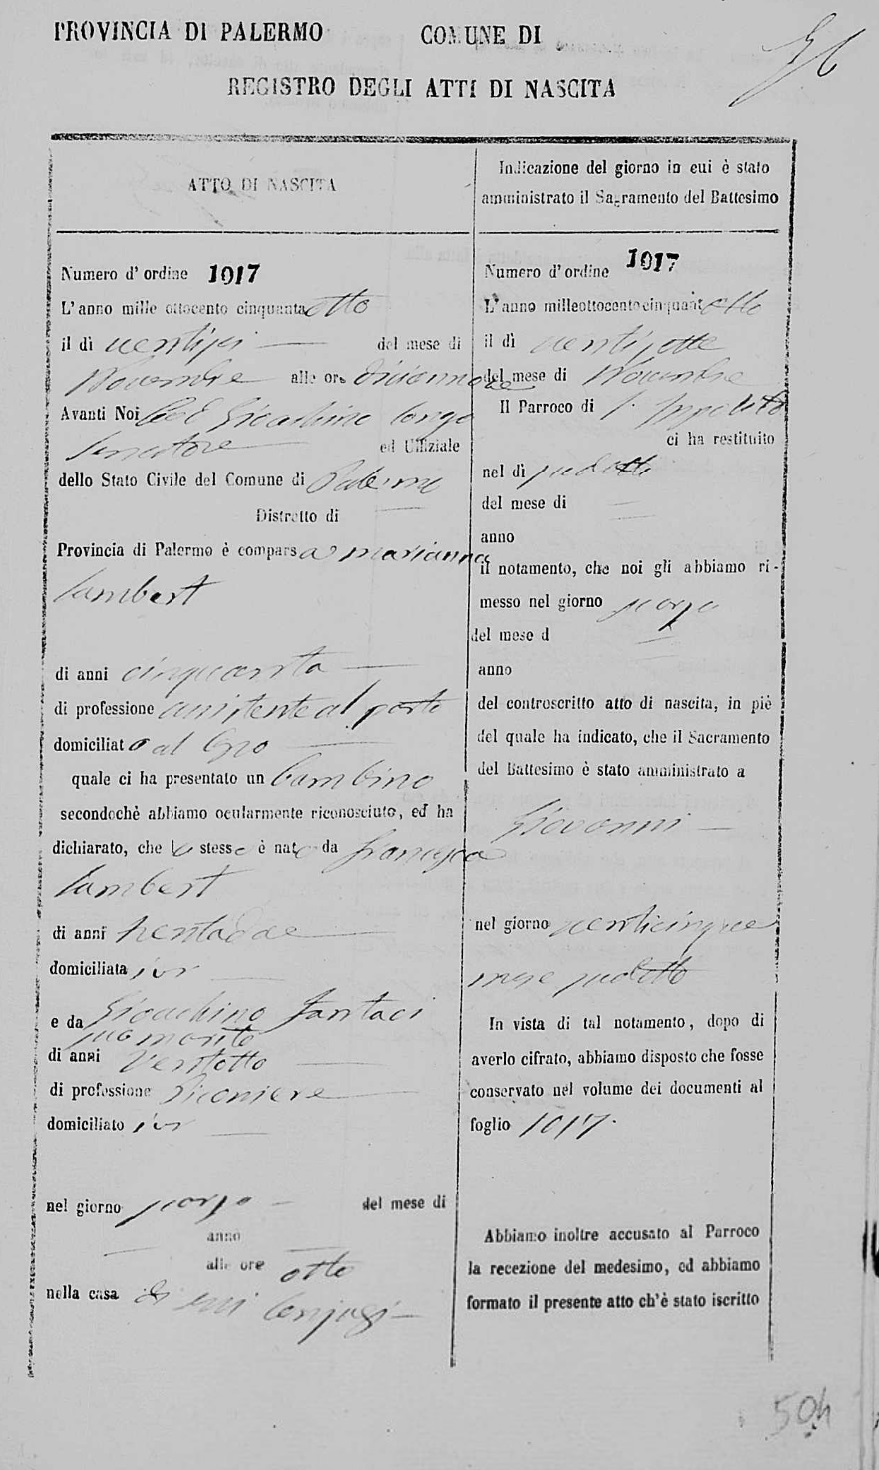 PROVINCIA DI PALERMO COMUNE DI
REGISTRO DEGLI ATTI DI NASCITA
ATTO DI NASCITA
Numero d' ordine 1017
L' anno mille ottocento cinquanta otto
il dì ventisei del mese di
Novembre alle ore diciannove
Avanti Noi Gioachino Longo
Senatore ed Uffiziale
dello Stato Civile del Comune di Palermo
Distretto di
Provincia di Palermo è comparsa Marianna
Lambert
di anni cinquanta
di professione assistente al parto
domiciliata al
quale ci ha presentato un bambino
secondochè abbiamo ocularmente riconosciuto, ed ha
dichiarato, che lo stesso è nato da Francesca
Lambert
di anni trentadue
domiciliata ivi
e da Gioachino Fantaci
suo marito
di anni ventotto
di professione
domiciliato ivi
nel giorno del mese di
anno
alle ore otto
nella casa di essi conjugi
Indicazione del giorno in cui è stato
amministrato il Sacramento del Battesimo
Numero d' ordine 1017
L' anno milleottocentocinquant otto
il dì ventisette
del mese di Novembre
Il Parroco di S. Ippolito
ci ha restituito
nel dì sudetto
del mese di
anno
il notamento, che noi gli abbiamo ri-
messo nel giorno
del mese d
anno
del controscritto atto di nascita, in piè
del quale ha indicato, che il Sacramento
del Battesimo è stato amministrato a
Giovanni
nel giorno venticinque
mese sudetto
In vista di tal notamento, dopo di
averlo cifrato, abbiamo disposto che fosse
conservato nel volume dei documenti al
foglio 1017.
Abbiamo inoltre accusato al Parroco
la recezione del medesimo, ed abbiamo
formato il presente atto ch'è stato iscritto
504